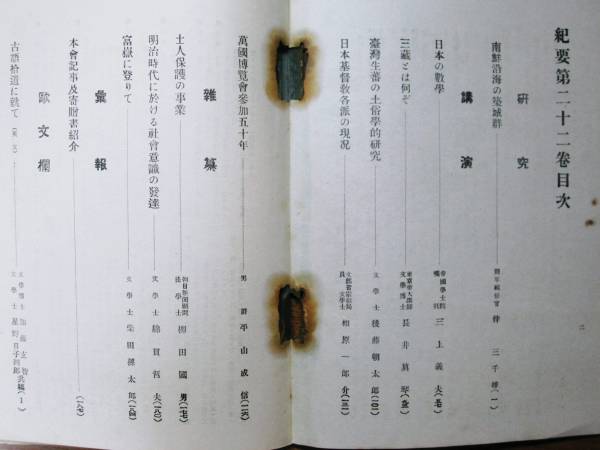 紀要第二十二卷目次
研究
南鮮沿海の築城群
伴三千雄(一)
日本の數學
三上義夫
講演
三藏とは何ぞ
文學博士 長井眞琴
臺灣生蕃の土俗學的研究
文學士 後藤朝太郎(一〇一)
日本基督敎各派の現況
相原一郎介
萬國博覽會參加五十年
男爵 平山成信
雜纂
土人保護の事業
柳田國男
明治時代に於ける社會意識の發達
文學士 綿貫哲夫
富嶽に登りて
文學士 柴田孫太郎
彙報
本會記事及寄贈書紹介
歐文欄
古語拾遺に就て
文學博士 加藤玄智
文學士 星野日子四郎
共稿(1)